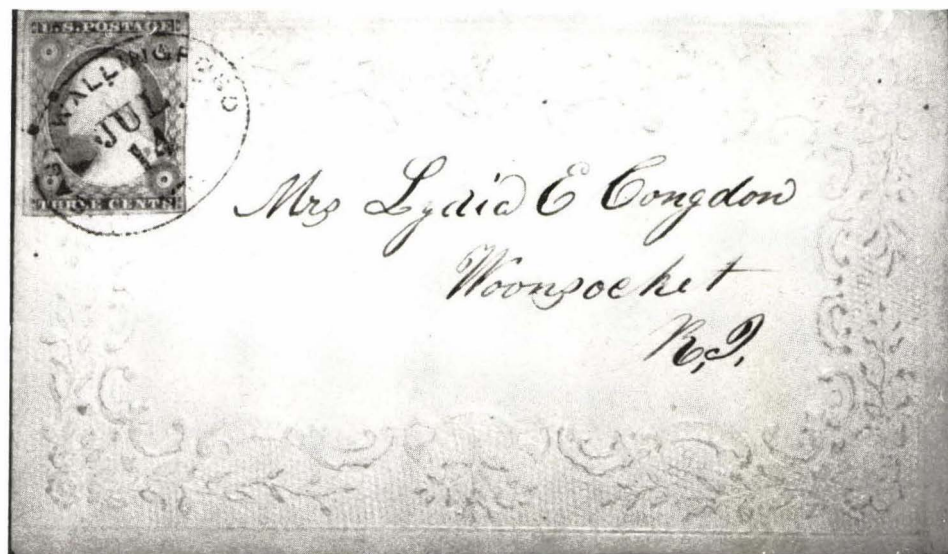 U.S. POSTAGE
WALLINGFORD
JUL
14
THREE CENTS
Mrs Lydia E Congdon
Woonsocket
R,I,